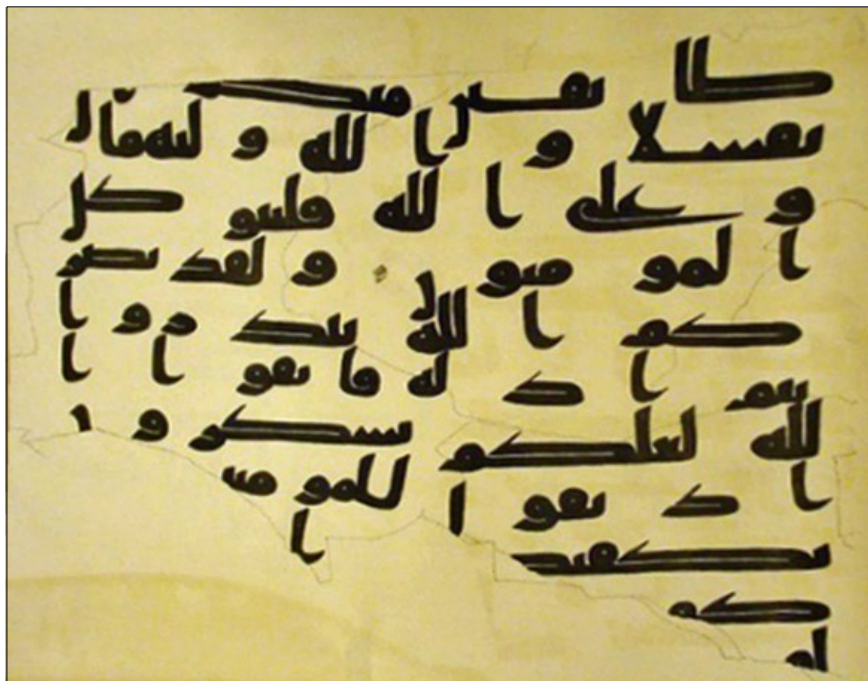 طا يفتن منكم ا ن
تفشلا و ا لله و ليهما
و على ا لله فليتو كل
ا لمو منو ن و لقد نصر
كم ا لله ببد ر و ا
نتم ا ذ لة فا تقو ا ا
لله لعلكم تشكر و ن
ا ذ تقو ل للمو منين
يكفيكم ا
كم